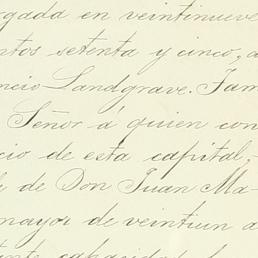 rgada en veintinueve
ntos setenta y cinco, a
ncio Landgrave. Tam
Señor á quien con
cio de esta capital,
de Don Juan Ma-
mayor de veintiun a
capacidad